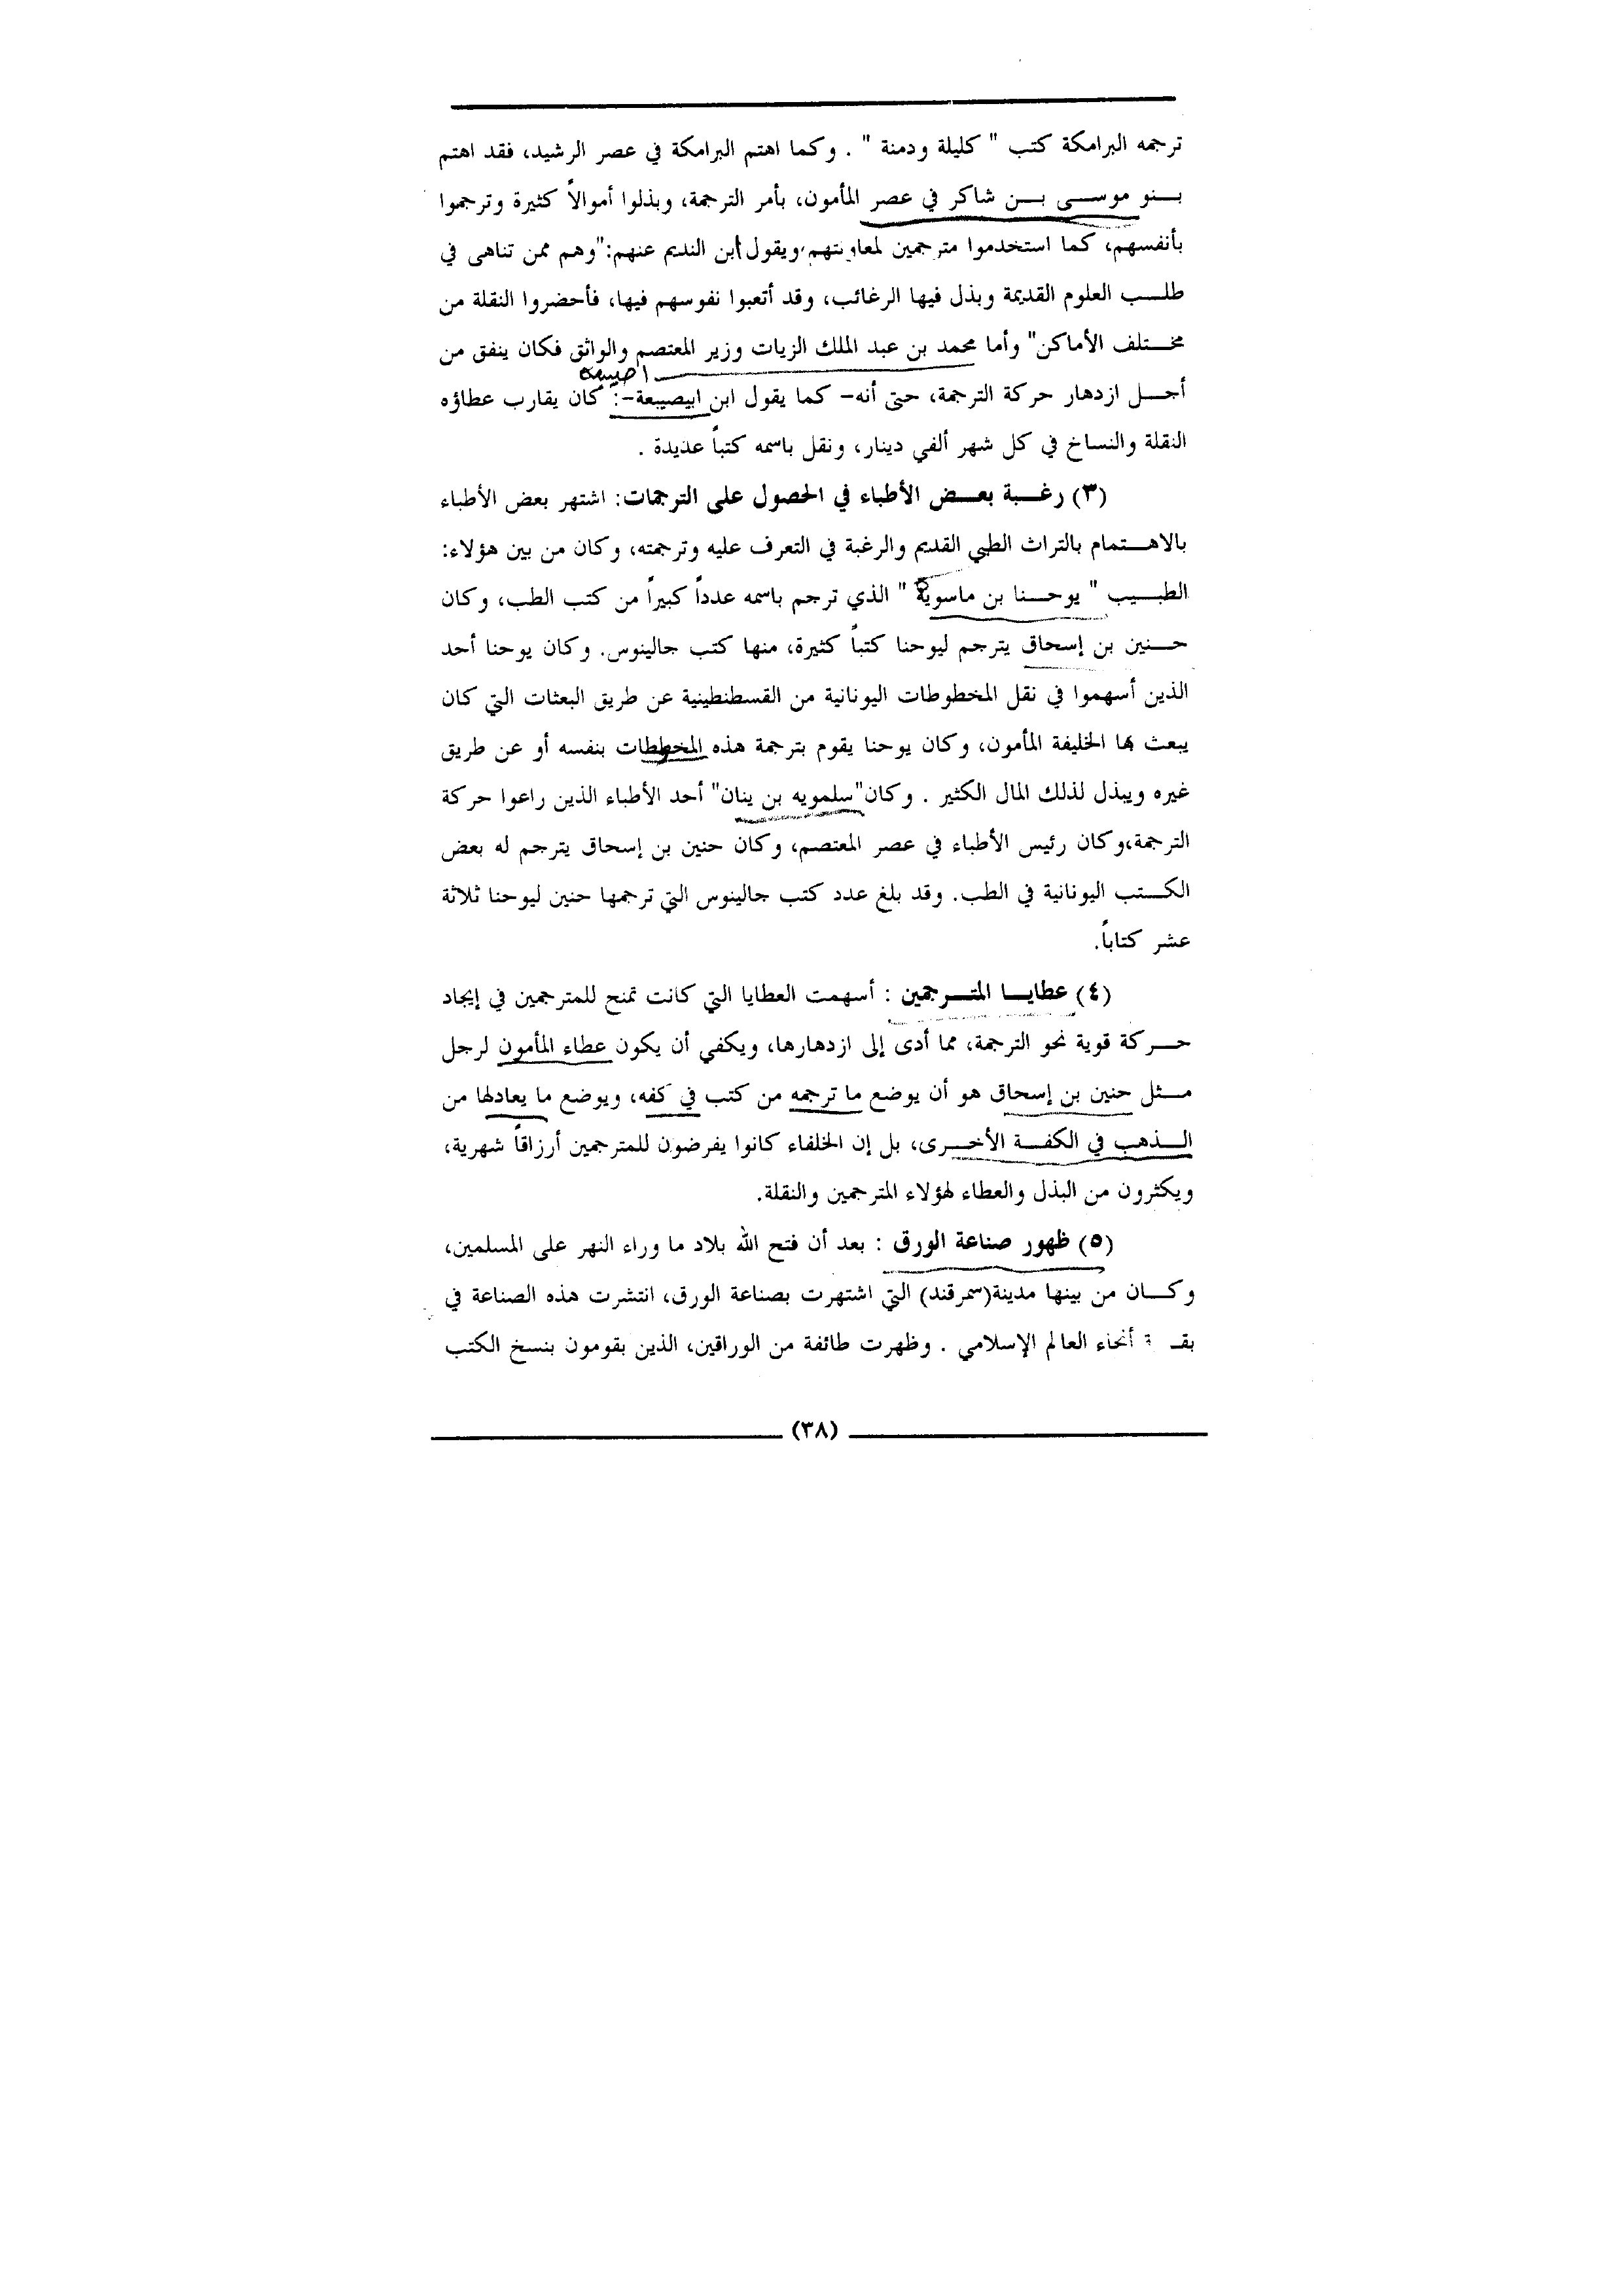 ترجمه البرامكة كتب " كليلة ودمنة " . وكما اهتم البرامكة في عصر الرشيد، فقد اهتم
بنو موسى بن شاكر في عصر المأمون، بأمر الترجمة، وبذلوا أموالاً كثيرة وترجموا
بأنفسهم، كما استخدموا مترجمين لمعاونتهم،ويقول ابن النديم عنهم:"وهم ممن تناهى في
طلب العلوم القديمة وبذل فيها الرغائب، وقد أتعبوا نفوسهم فيها، فأحضروا النقلة من
مختلف الأماكن" وأما محمد بن عبد الملك الزيات وزير المعتصم والواثق فكان ينفق من
اصيبعه
أجل ازدهار حركة الترجمة، حتى أنه– كما يقول ابن ابيصيبعة–: كان يقارب عطاؤه
النقلة والنساخ في كل شهر ألفي دينار، ونقل باسمه كتباً عديدة .
(٣) رغبة بعض الأطباء في الحصول على الترجمات: اشتهر بعض الأطباء
بالاهتمام بالتراث الطبي القديم والرغبة في التعرف عليه وترجمته، وكان من بين هؤلاء:
الطبيب " يوحنا بن ماسوية " الذي ترجم باسمه عدداً كبيراً من كتب الطب، وكان
حنين بن إسحاق يترجم ليوحنا كتباً كثيرة، منها كتب جالينوس. وكان يوحنا أحد
الذين أسهموا في نقل المخطوطات اليونانية من القسطنطينية عن طريق البعثات التي كان
يبعث بها الخليفة المأمون، وكان يوحنا يقوم بترجمة هذه المخطوطات بنفسه أو عن طريق
غيره ويبذل لذلك المال الكثير . وكان"سلمويه بن ينان" أحد الأطباء الذين راعوا حركة
الترجمة،وكان رئيس الأطباء في عصر المعتصم، وكان حنين بن إسحاق يترجم له بعض
الكتب اليونانية في الطب. وقد بلغ عدد كتب جالينوس التي ترجمها حنين ليوحنا ثلاثة
عشر كتاباً.
(٤) عطايا المترجمين : أسهمت العطايا التي كانت تمنح للمترجمين في إيجاد
حركة قوية نحو الترجمة، مما أدى إلى ازدهارها، ويكفي أن يكون عطاء المأمون لرجل
مثل حنين بن إسحاق هو أن يوضع ما ترجمه من كتب في كفه، ويوضع ما يعادلها من
الذهب في الكفة الأخرى، بل إن الخلفاء كانوا يفرضون للمترجمين أرزاقاً شهرية،
ويكثرون من البذل والعطاء لهؤلاء المترجمين والنقلة.
(٥) ظهور صناعة الورق : بعد أن فتح الله بلاد ما وراء النهر على المسلمين،
وكان من بينها مدينة(سمرقند) التي اشتهرت بصناعة الورق، انتشرت هذه الصناعة في
بقية أنحاء العالم الإسلامي . وظهرت طائفة من الوراقين، الذين يقومون بنسخ الكتب
(٣٨)